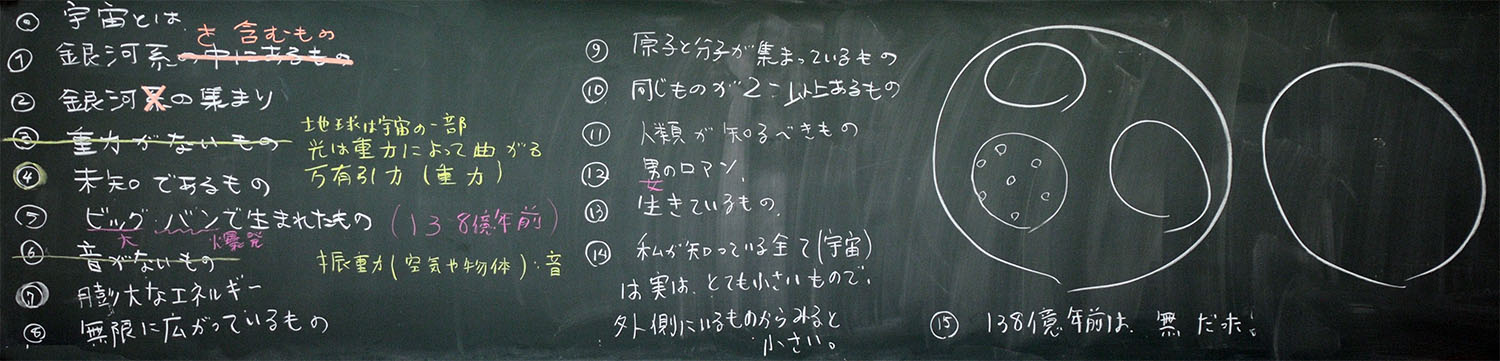 ⓪ 宇宙とは
を含むもの
① 銀河系の中にあるもの
② 銀河系の集まり
③ 重力がないもの
地球は宇宙の一部
光は重力によって曲がる
万有引力(重力)
④ 未知であるもの
⑤ ビッグ・バンで生まれたもの(138億年前)
大 爆発
⑥ 音がないもの
振動(空気や物体)・音
⑦ 膨大なエネルギー
⑧ 無限に広がっているもの
⑨ 原子と分子が集まっているもの
⑩ 同じものが2こ以上あるもの
⑪ 人類が知るべきもの
⑫ 男のロマン
女
⑬ 生きているもの
⑭ 私が知っている全て(宇宙)
は実は、とても小さいもので、
外側にいるものからみると
小さい。
⑮ 138億年前は、無